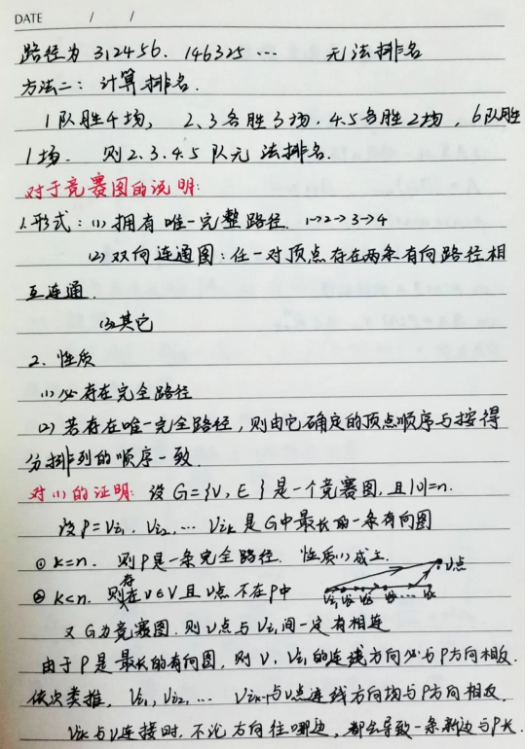 DATE / /
路径为 312456. 146325 … 无法排名
方法二: 计算排名.
1队胜4场, 2、3各胜3场. 4.5各胜2场, 6队胜
1场. 则2.3.4.5队无法排名.
对于竞赛图的说明:
1.形式: (1) 拥有唯一完整路径. 1→2→3→4
(2) 双向连通图: 任一对顶点存在两条有向路径相
互连通.
(3)其它
2. 性质
(1) 必存在完全路径
(2) 若存在唯一完全路径, 则由它确定的顶点顺序与按得
分排列的顺序一致.
对(1)的证明: 设G={V, E}是一个竞赛图, 且|V|=n.
设P=Vi1. Vi2, … Vik是G中最长的一条有向图
① k=n. 则P是一条完全路径. 性质(1)成立.
② k<n. 则存在v∈V且v点不在P中 v点
又G为竞赛图. 则v点与Vi1间一定有相连
由于P是最长的有向图, 则V. Vi1的连线方向必与P方向相反.
依次类推, Vi1, Vi2, … Vik-1与v点连线方向均与P方向相反.
Vik与v连接时, 不论方向往哪边, 都会导致一条新边与P长